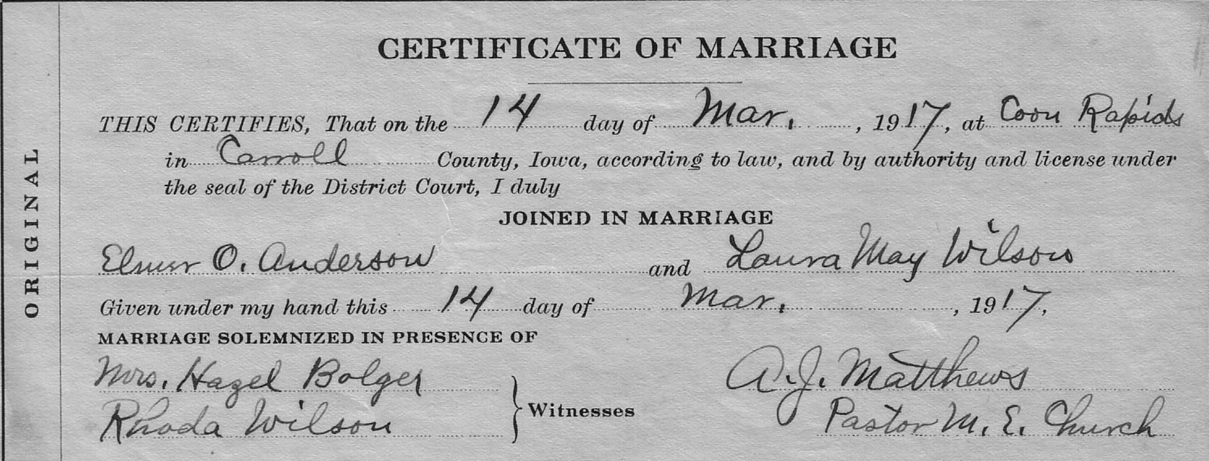 ORIGINAL
CERTIFICATE OF MARRIAGE
THIS CERTIFIES, That on the 14 day of Mar. , 1917, at Coon Rapids
in Carroll County, Iowa, according to law, and by authority and license under
the seal of the District Court, I duly
JOINED IN MARRIAGE
Elmer O. Anderson and Laura May Wilson
Given under my hand this 14 day of Mar. , 1917.
MARRIAGE SOLEMNIZED IN PRESENCE OF
Mrs. Hazel Bolger
Rhoda Wilson
Witnesses
A. J. Matthews
Pastor M. E. Church